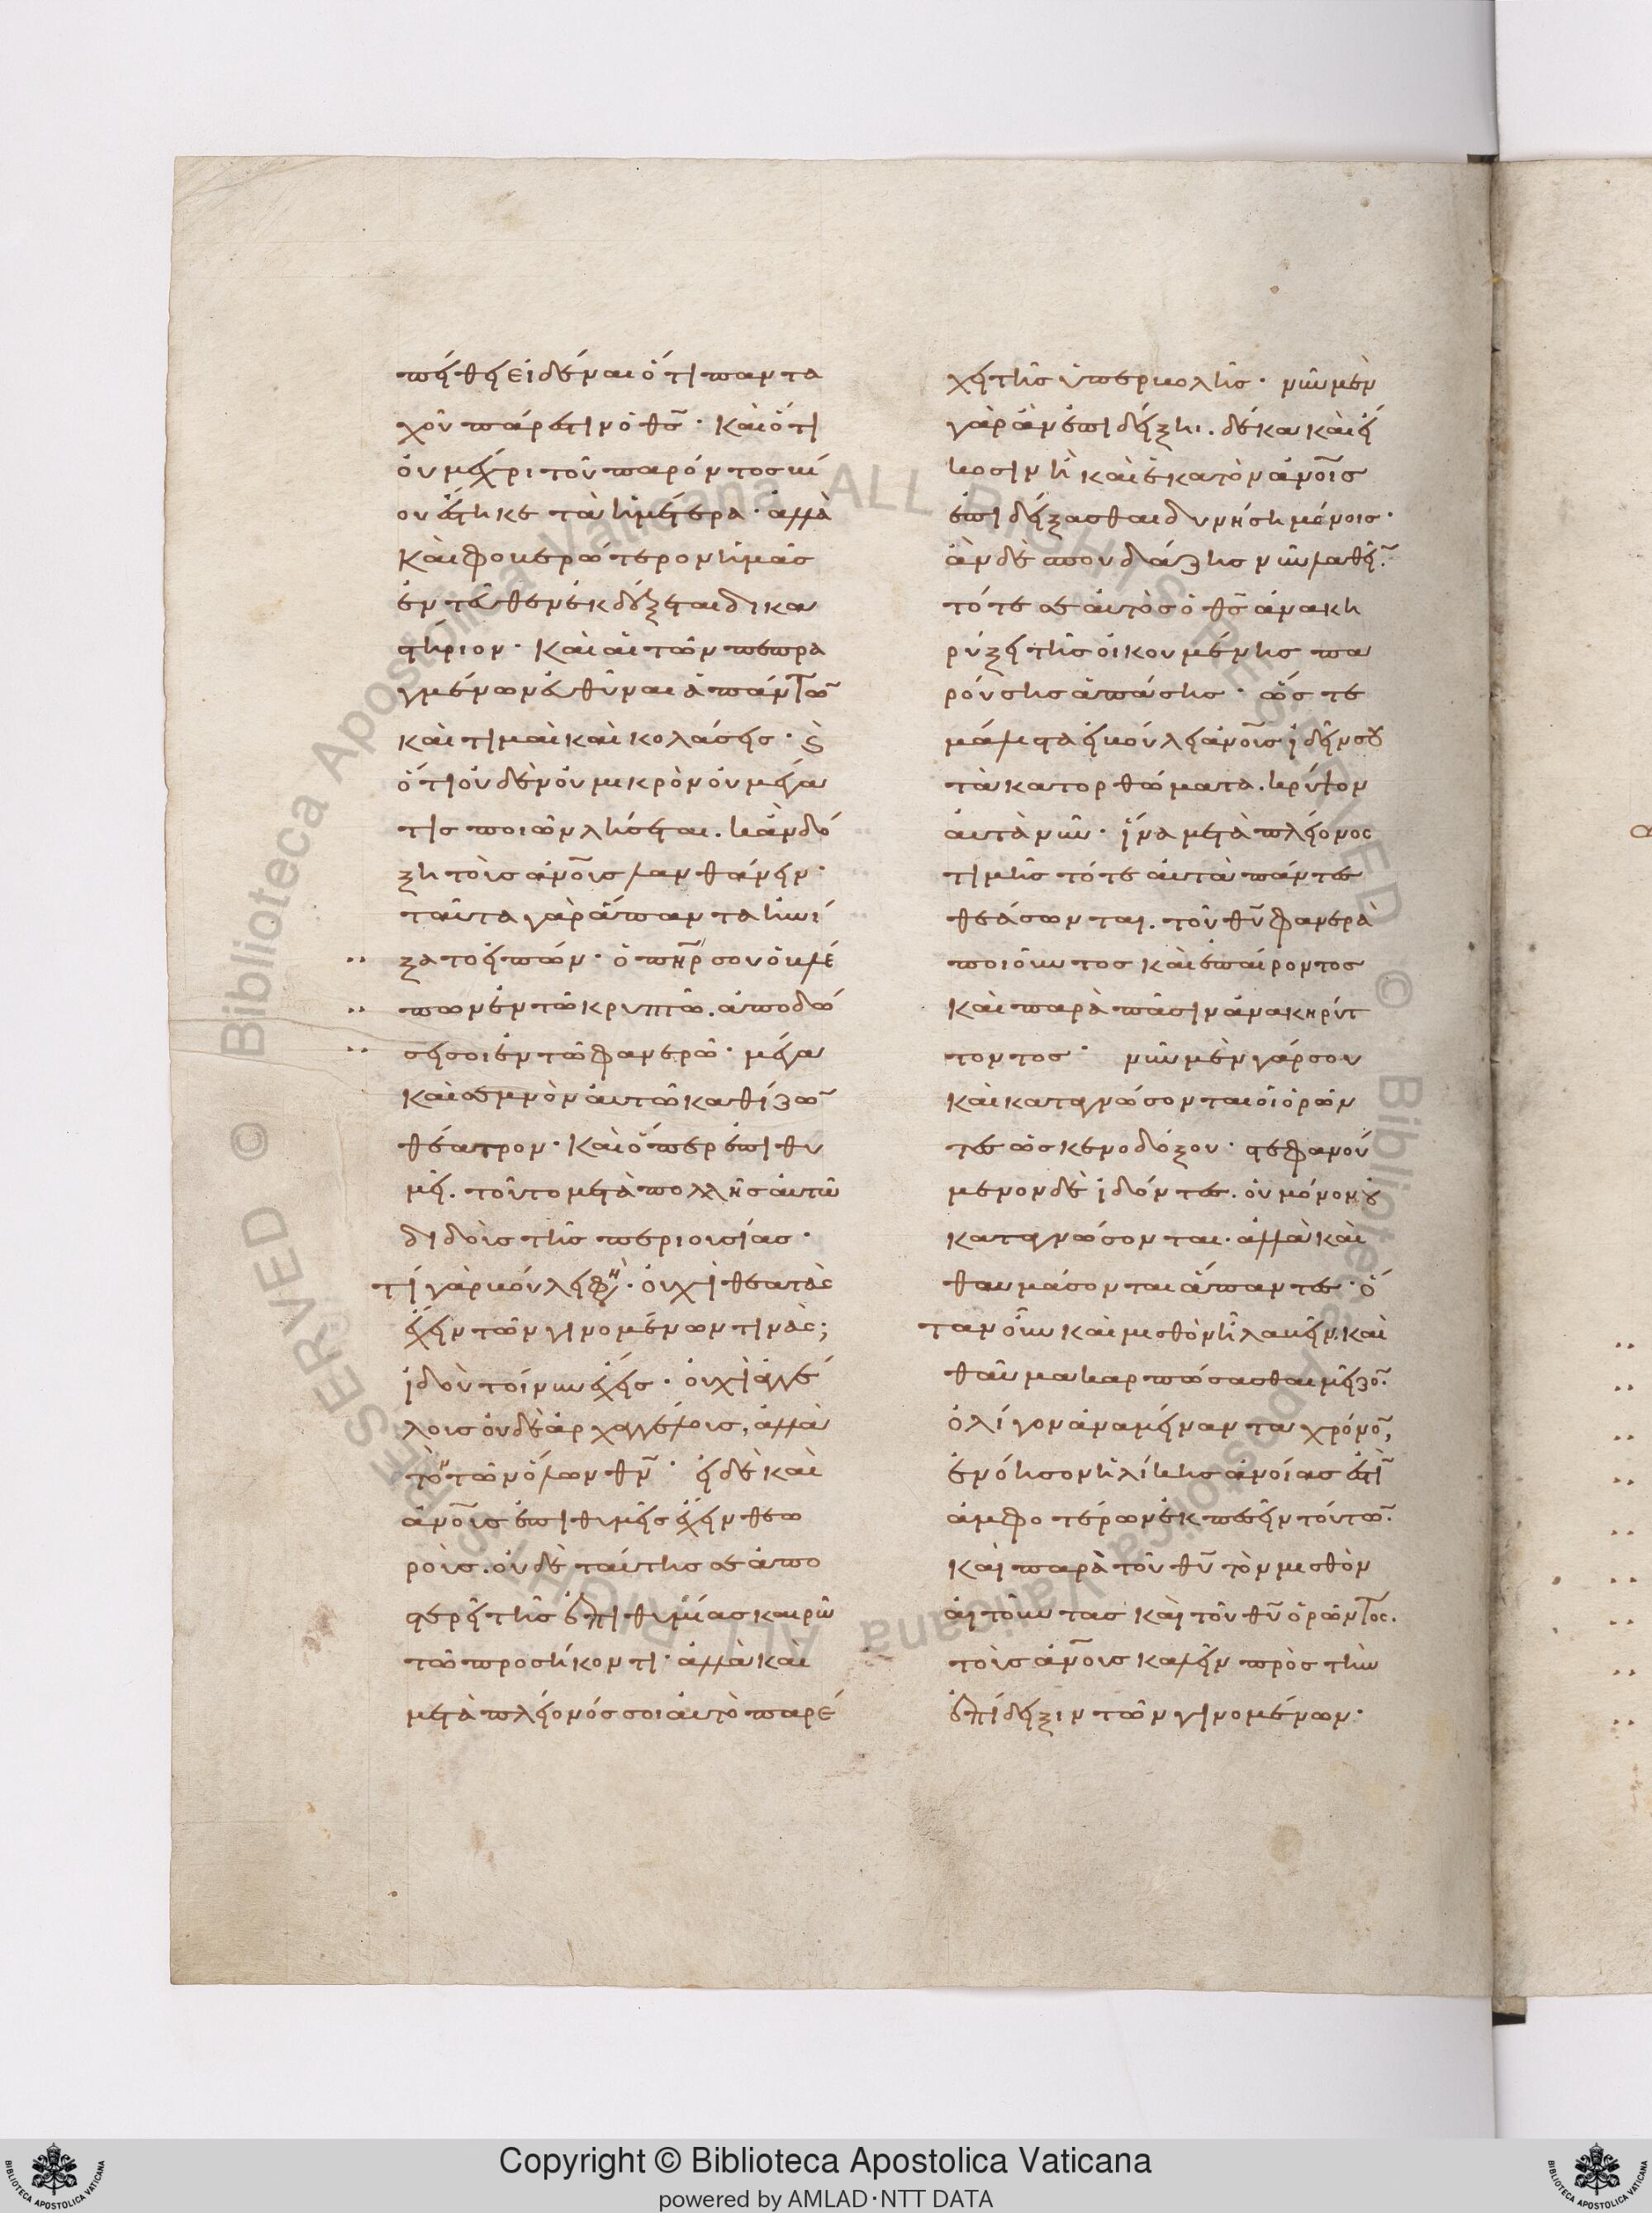 πείθει εἰδέναι ὅτι παντα
χοῦ πάρεστιν ὁ θς̅· καὶ ὅτι
οὐ μέχρι τοῦ παρόντος βί
ου ἕστηκε τὰ ἡμέτερα· ἀλλὰ
καὶ φοβερώτερον ἡμᾶς
ἐντεῦθεν ἐκδέξεται δικα
στήριον· καὶ αἱ τῶν πεπρα
γμένων εὐθῦναι ἁπάντω̅
καὶ τιμαὶ καὶ κολάσεις· ϗ
ὅτι οὐδὲν οὐ μικρὸν οὐ μέγα
τίς ποιῶν λήσεται. κἂν δό
ξη τοῖς ἀν̅οις λανθάνειν·
ταῦτα γὰρ ἅπαντα ἠνί
ξατο εἰπών· ὁ πη̅ρ σου ὁ βλέ
πων ἐν τῶ κρυπτῶ. ἀποδώ
σει σοι ἐν τῶ φανερῶ· μέγα
καὶ σεμνὸν αὐτῶ καθίζω̅
θέατρον· καὶ ὅπερ ἐπιθυ
μεῖ. τοῦτο μετὰ πολλῆς αὐτῶ
διδοὺς τῆς περιουσίας·
τί γὰρ βούλει φη· οὐχὶ θεατὰς
ἔχειν τῶν γινομένων τινὰς;
ἰδοὺ τοίνυν ἔχεις· οὐχὶ ἀγγέ
λοις οὐδὲ ἀρχαγγέλοις, ἀλλὰ
τὸν τῶν ὅλων θν̅· εἰ δὲ καὶ
ἀν̅οις ἐπιθυμεῖς ἔχειν θεω
ροὺς. οὐδὲ ταύτης σε ἀπο
στερεῖ τῆς ἐπιθυμίας καιρῶ
τῶ προσήκοντι· ἀλλὰ καὶ
μετὰ πλείονός σοι αὐτὸ παρέ
χει τῆς ὑπερβολῆς· νῦν μὲν
γὰρ ἂν ἐπιδείξηι. δέκα καὶ εἴ
κοσιν ἢ καὶ ἑκατὸν ἀν̅οις
ἐπιδείξασθαι δυνήση μόνοις·
ἂν δὲ σπουδάζης νῦν λαθεῖ̅·
τότε σε αὐτὸς ὁ θς̅ ἀνακη
ρύξει τῆς οἰκουμένης πα
ρούσης ἁπάσης· ὥστε
μάλιστα εἰ βούλει ἀν̅οις ἰδεῖν σου
τὰ κατορθώματα. κρύψον
αὐτὰ νῦν· ἵνα μετὰ πλείονος
τιμῆς τότε αὐτὰ πάντες
θεάσωνται. τοῦ θυ̅ φανερὰ
ποιοῦντος καὶ ἐπαίροντος
καὶ παρὰ πᾶσιν ἀνακηρύτ
τοντος· νῦν μὲν γάρ σου
καὶ καταγνώσονται οἱ ὁρῶν
τες ὡς κενοδόξου· στεφανού
μενον δὲ ἰδόντες. οὐ μόνον οὐ
καταγνώσονται· ἀλλὰ καὶ
θαυμάσονται ἅπαντες· ὅ
ταν οὖν καὶ μισθὸν ἦ λαβεῖν. καὶ
θαῦμα καρπώσασθαι μεῖζο̅·
ὀλίγον ἀναμείναντα χρόνο̅,
ἐννόησον ἡλίκης ἀνοίας ἐστὶ̅
ἀμφοτέρων ἐκπεσεῖν τούτω̅·
καὶ παρὰ τοῦ θυ̅ τὸν μισθὸν
αἰτοῦντας καὶ τοῦ θυ̅ ὁρῶντος.
τοὺς ἀν̅ους καλεῖν πρὸς τὴν
ἐπίδειξιν τῶν γινομένων·
Copyright © Biblioteca Apostolica Vaticana
powered by AMLAD·NTT DATA